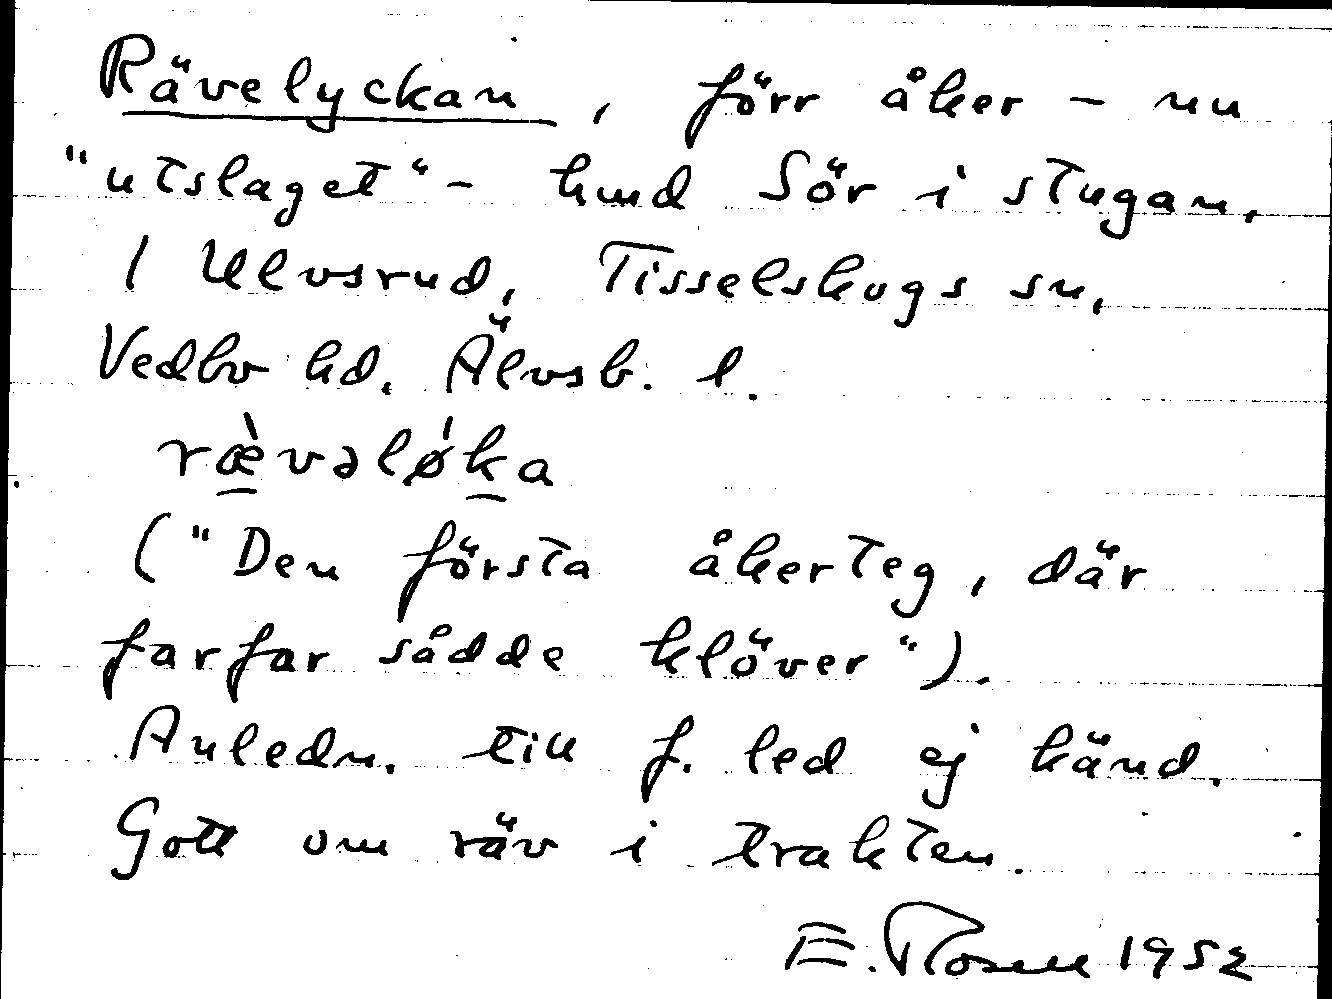 Rävelyckan, förr åker – nu
"utslaget" – hmd Sör i stugan,
1 Ulvsrud, Tisselskogs sn,
Vedbo hd. Älvsb. l.
ræ̀vəlǿka
("Den första åkerteg, där
farfar sådde klöver").
Anledn. till f. led ej känd.
Gott om räv i trakten.
E. Rosell 1952